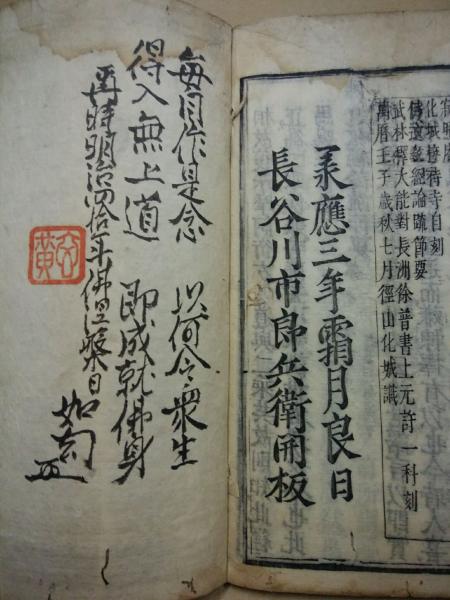 化城接待寺自刻
經論疏節要
武林釋大能對長洲徐普書上元許一科刻
萬曆壬子歲秋七月徑山化城識
承應三年霜月良日
長谷川市郎兵衛開板
每自作是念 以何令衆生
得入無上道 即成就佛身
時明治四拾年佛涅槃日
如幻